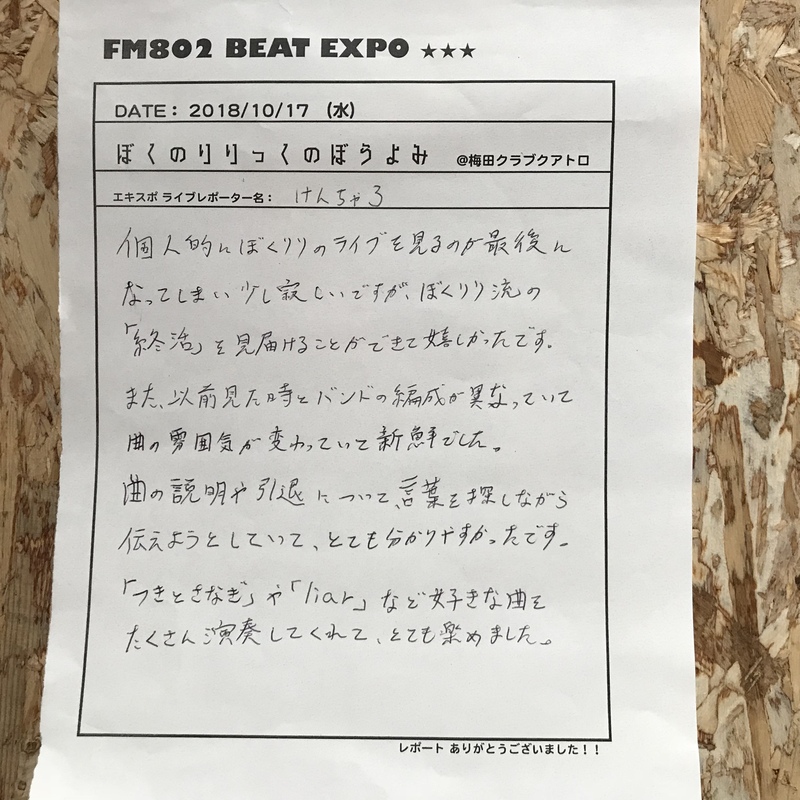 FM802 BEAT EXPO ★★★
DATE： 2018/10/17 （水）
ぼくのりりっくのぼうよみ ＠梅田クラブクアトロ
エキスポ ライブレポーター名： けんちゃろ
個人的にぼくりりのライブを見るのが最後に
なってしまい少し寂しいですが、ぼくりり流の
「終活」を見届けることができて嬉しかったです。
また、以前見た時とバンドの編成が異なっていて
曲の雰囲気が変わっていて新鮮でした。
曲の説明や引退について、言葉を探しながら
伝えようとしていて、とても分かりやすかったです。
「つきとさなぎ」や「liar」など好きな曲を
たくさん演奏してくれて、とても楽めました。
レポート ありがとうございました！！